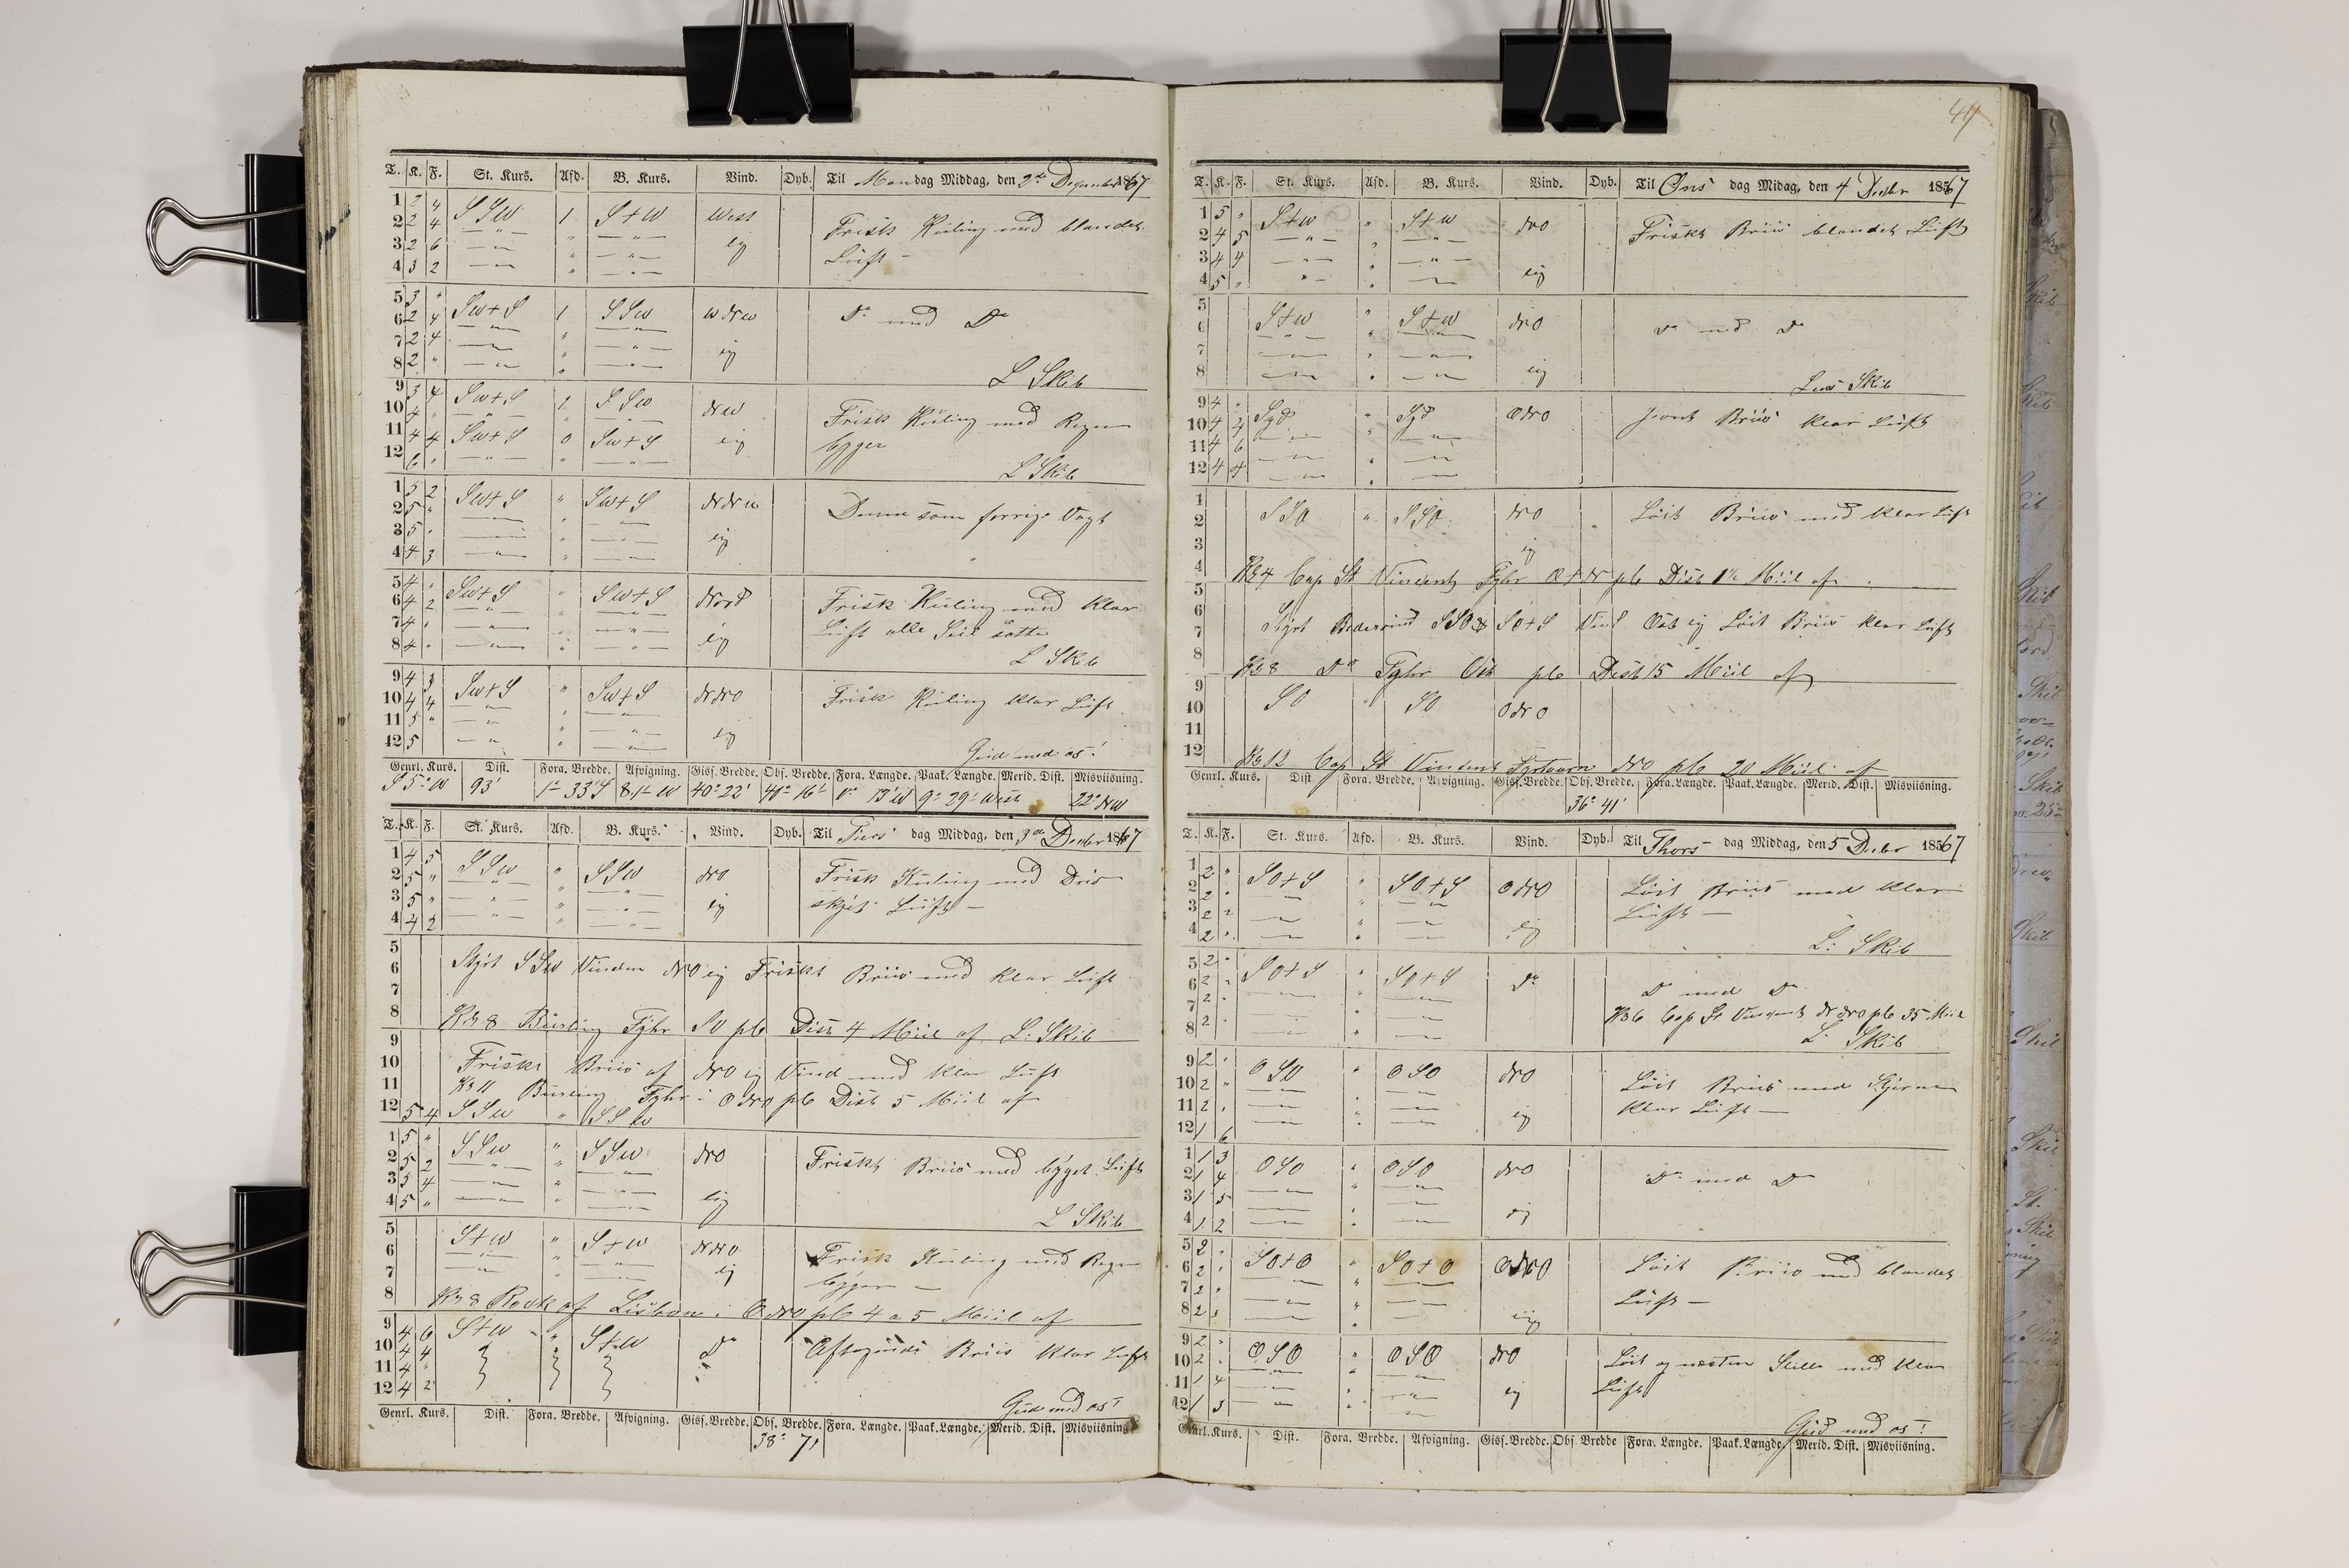 T. K. F. St. Kurs. Afd. B. Kurs. Vind. Dyb. Til Mandag Middag, den 2de December 1867
1 2 4 SSW 1 S+W West Frisk Kuling med blandet
2 2 4 — " — " — " —
3 2 6 — " — " — " — lig Luft —
4 3 2 — " — " — " —
5 3 " SW+S 1 SSW WNW Do med Do
6 2 4 — " — " — " —
7 2 4 — " — " — " —
8 2 " — " — " — " — lig
L Skib
9 3 4 SW+S 1 SSW NW Frisk Kuling med Regn
10 4 " — " — " — " — bÿger
11 4 4 SW+S 0 SW+S lig
12 6 " — " — " — " —
L Skib
1 5 2 SW+S " SW+S NNW Denne som forrige Vagt
2 5 " — " — " — " —
3 5 " — " — " — " — lig
4 4 3 — " — " — " —
5 4 " SW+S " SW+S Nord Frisk Kuling med Klar
6 4 2 — " — " — " — Luft alle Seil satte
7 4 " — " — " — " — lig
8 4 " — " — " — " —
L Skib
9 4 3 SW+S " SW+S NNO Frisk Kuling klar Luft
10 4 4 — " — " — " —
11 5 " — " — " — " — lig
12 5 — " — " — " —
Gud med os!
Genrl. Kurs. Dist. Fora. Bredde. Afvigning. Gisf. Bredde. Obs. Bredde. Fora. Længde. Paak. Længde. Merid. Dist. Misviisning.
S 5° W 93' 1° 33' S 8,1 W 40° 22' 40° 16' 0° 13' W 9° 29' West 22° NW
T. K. F. St. Kurs. Afd. B. Kurs. Vind. Dyb. Til Tiers dag Middag, den 3de Decbr 1867
1 4 5 SSW " SSW NO Frisk Kuling med
2 5 " — " — " — " —
3 5 " — " — " — " — lig Luft —
4 4 2 — " — " — " —
5
6 Styrt SSW Vinden NO lig Friskt Briis med klar Luft
7
8 Kl 8 Burling Fyhr SO pb Dist 4 Miil af L. Skib
9
10 Friskt Briis af NO lig Vind med klar Luft
11 Kl 11 Burling Fyhr i ONO pb Dist 5 Miil af
12 5 4 SSW " SSW
1 5 " SSW " SSW NO Friskt Briis med bÿget Luft
2 5 2 — " — " — " —
3 5 4 — " — " — " —
4 5 " — " — " — " — lig
L Skib
5 S+W " S+W NNO Frisk Kuling med Regn
6 — " — " — " —
7 — " — " — " — lig bÿger —
8 Kl 8 Rock af Lisbon i ONO pb 4 a 5 Miil af
9 4 6 S+W " S+W Do Aftagende Briis klar Luft
10 4 4
11 4 "
12 4 2
Gud med os!
Genrl. Kurs. Dist. Fora. Bredde. Afvigning. Gisf. Bredde. Obs. Bredde. Fora. Længde. Paak. Længde. Merid. Dist. Misviisning.
38° 7'
T. K. F. St. Kurs. Afd. B. Kurs. Vind. Dyb. Til Ons dag Midag, den 4 Decbr 1867
1 5 " S+W " S+W NO Friskt Briis blandet Luft
2 4 5 — " — " — " —
3 4 4 — " — " — " —
4 5 " — " — " — " — lig
5
6 S+W " S+W NO Do med Do
7 — " — " — " —
8 — " — " — " — lig
Lens Skib
9 4 " Syd " Syd ONO Jevnt Briis klar Luft
10 4 4 — " — " — " —
11 4 6 — " — " — " —
12 4 4 — " — " — " —
1
2 SSO " SSO NO Løit Briis med klar Luft
3 lig
4 Kl 4 Cap St Vincent Fyhr O+N pb Dist Miil af
5
6
7 Styrt SSO SO+S Vind Ost lig Løit Briis klar Luft
8 Kl 8 Do Fyhr Ost pb Dist 15 Miil af
9
10 SO " SO ONO
11
12 Kl 12 Cap St Vincent Fyrtaarn NO pb 20 Miil af
Genrl. Kurs. Dist. Fora. Bredde. Afvigning. Gisf. Bredde. Obs. Bredde. Fora. Længde. Paak. Længde. Merid. Dist. Misviisning.
36° 41'
T. K. F. St. Kurs. Afd. B. Kurs. Vind. Dyb. Til Thors dag Middag, den 5 Decbr 1867
1 2 " SO+S " SO+S ONO Løit Briis med klar
2 2 " — " — " — " — Luft —
3 2 " — " — " — " —
4 2 " — " — " — " — lig
L: Skib
5 2 " SO+S " SO+S Do Do med Do
6 2 " — " — " — " —
7 2 " — " — " — " — Kl 6 Cap St Vincent NNO pb 35 Miil
8 2 " — " — " — " —
L. Skib
9 2 " OSO " OSO NO Løit Briis med Stjerne
10 2 " — " — " — " —
11 2 " — " — " — " — lig klar Luft —
12 1 6 — " — " — " —
1 1 3 OSO " OSO NO Do med Do
2 1 4 — " — " — " —
3 1 5 — " — " — " —
4 1 2 — " — " — " — lig
5 2 " SO+O " SO+O ONO Løit Briis med blandet
6 2 " — " — " — " —
7 2 " — " — " — " — Luft —
8 2 " — " — " — " — lig
9 2 " OSO " OSO NO Løit og næsten Stille med klar
10 2 " — " — " — " —
11 1 4 — " — " — " — lig Luft
12 1 3 — " — " — " —
Gud med os!
Genrl. Kurs. Dist. Fora. Bredde. Afvigning. Gisf. Bredde. Obs. Bredde Fora. Længde. Paak. Længde. Merid. Dist. Misviisning.